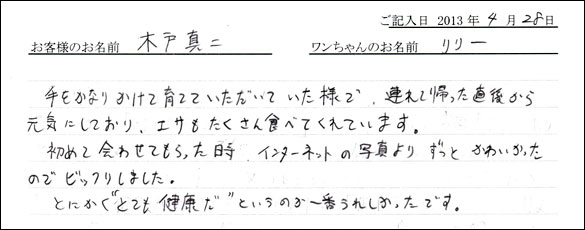 ご記入日 2013年4月28日
お客様のお名前 木戸真二 ワンちゃんのお名前 リリー
手をかなりかけて育てていただいていた様で、連れて帰った直後から
元気にしており、エサもたくさん食べてくれています。
初めて会わせてもらった時、インターネットの写真よりずっとかわいかった
のでビックリしました。
とにかく"とても健康だ"というのが一番うれしかったです。